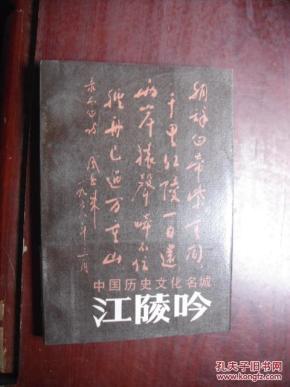 朝辞白帝彩云间
千里江陵一日还
两岸猿声啼不住
轻舟已过万重山
中国历史文化名城
江陵吟
孔夫子旧书网